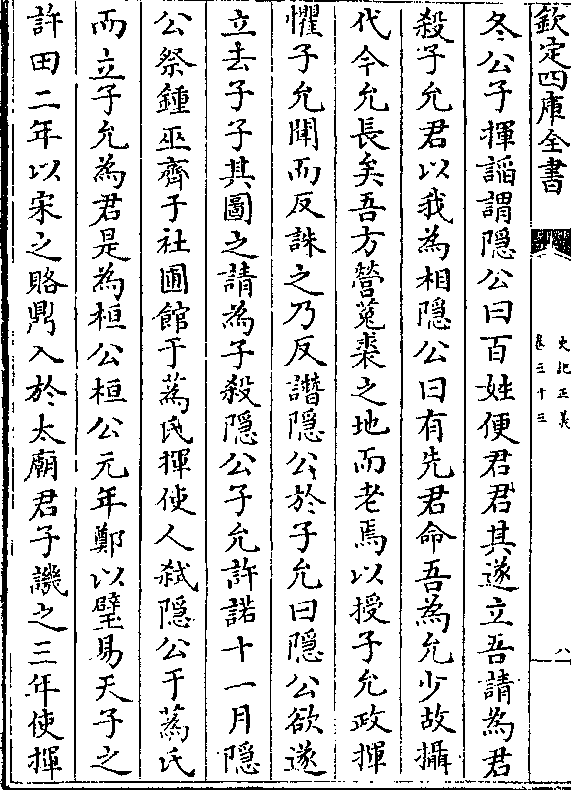 欽定四庫全書
史記正義
卷三十三
八
冬公子揮謟謂隠公曰百姓便君君其遂立吾請為君
殺子允君以我為相隠公曰有先君命吾為允少故攝
代今允長矣吾方營菟裘之地而老焉以授子允政揮
懼子允聞而反誅之乃反譖隠公於子允曰隠公欲遂
立去子子其圖之請為子殺隠公子允許諾十一月隠
公祭鍾巫齊于社圃館于蔿氏揮使人弑隠公于蔿氏
而立子允為君是為桓公桓公元年鄭以璧易天子之
許田二年以宋之賂鼎入於太廟君子譏之三年使揮